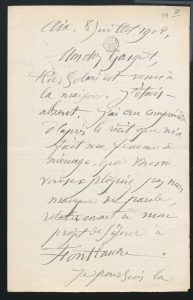 Aix, 8 Juillet 1902,
Mon cher Gasquet,
Hier Solari est venu à
la maison. J'étais
absent. J'ai cru comprendre
d'après le récit que m'a
fait ma femme de
ménage, que vous
vous
manque de parole,
relativement à mon
projet de séjour à
Je poursuis la